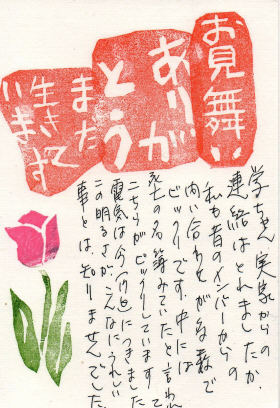 お見舞い
ありが
とう
また
生きて
います
学ちゃん 実家からの
連絡はとれましたか.
私も昔のメンバーからの
問い合わせが
ビックリです。中には
の名簿みていたと言われ
こちらがビックリしています。て
電気は今につきました
この明るさがこんなにうれしい
事とは、知りませんでした。